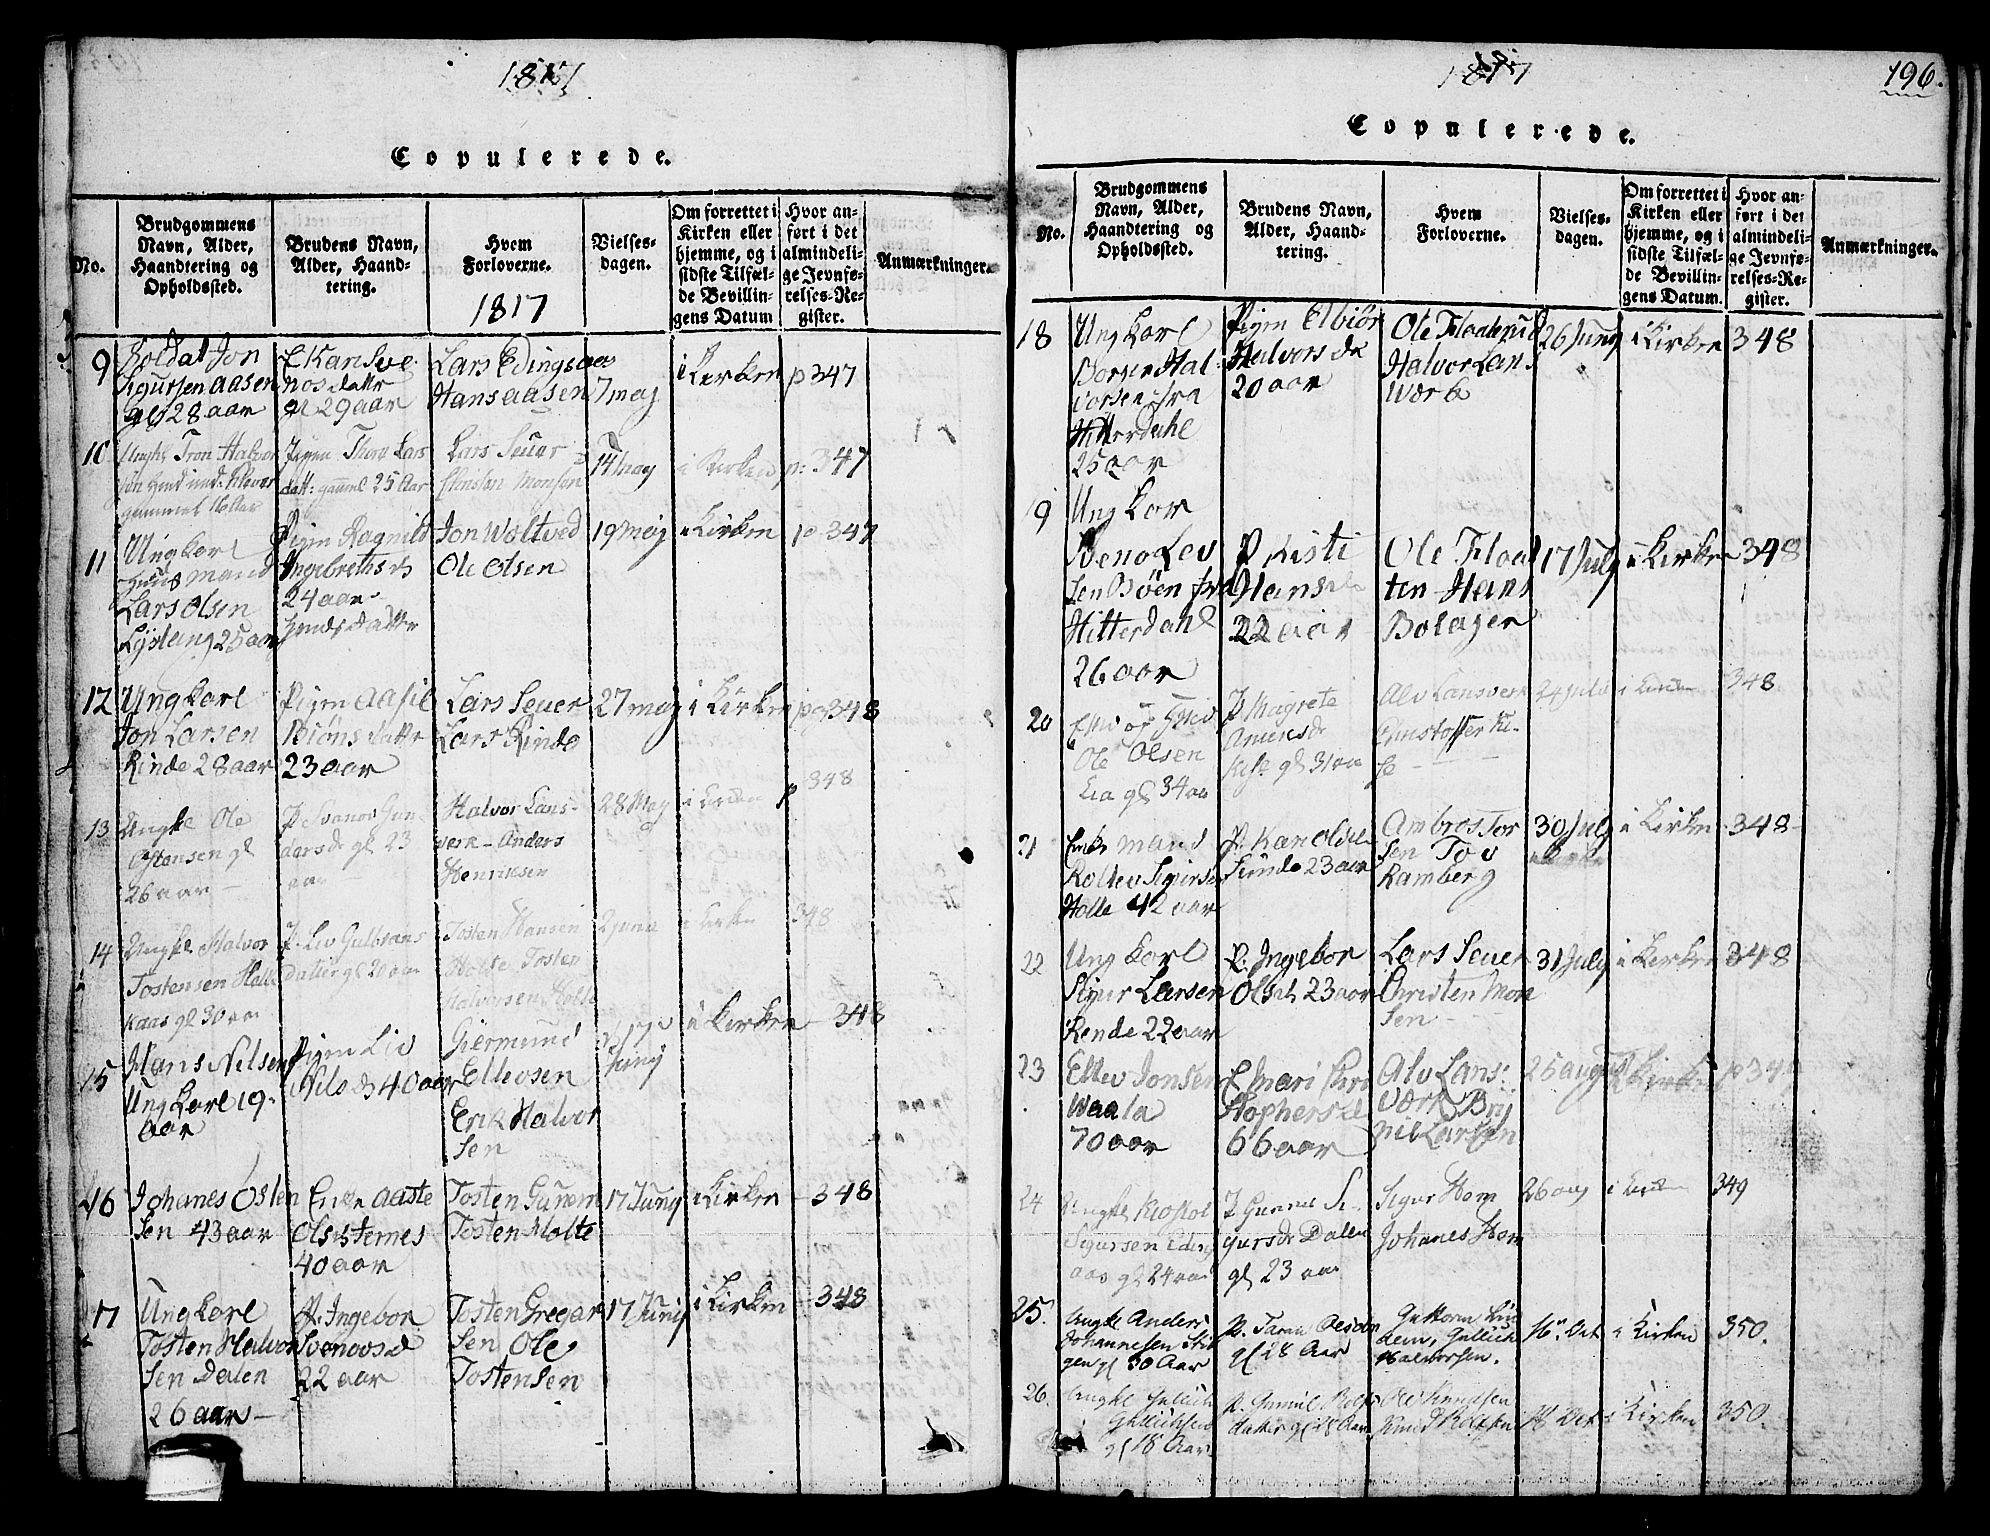 1817
Copulerede.
No.
Brudgommens
Navn, Alder,
Haandtering og
Opholdssted.
Brudens Navn,
Alder, Haand-
tering.
Hvem
Forloverne.
1817
Vielses-
dagen.
Om forrettet i
Kirken eller
hjemme, og i
sidste Tilfæl-
de Bevillin-
gens Datum
Hvor an-
ført i det
almindeli-
ge Jevnfø-
relses-Re-
gister.
Anmærkninger.
9 Soldat Jon
Sigursen Aasen
gl 28 aar
E Kari Sve
nos dattr
gl 29 aar
Lars Edingsaas
Hans Aasen
7 maj
i Kirken
p 347
10 Ungke Tron Halvor
gammel 16 Aar
Pigen Thora Lars
datt: gammel 25 Aar
Lars Seuer
Christen Monsen
14 may
i Kirken
p: 347
11 Ungkarl
Huus mand
Lars Olsen
25 aar
Pigen Ragnild
Ingebrethsd
24 aar
Jon Woltved
Ole Olsen
19 maj
i Kirken
p 347
12 Ungkarl
Jon Larsen
Rinde 28 aar
Pigen Aasil
Biøns dattr
23 aar
Lars Seuer
Lars Rinde
27 maj
i Kirken
pag 348
13 Ungke Ole
Ostensen gl
26 aar
P Svanov Gun
arsdr gl 23
aar
Halvor Lans-
verk - Anders
Henriksen
28 May
i Kirken
p 348
14 Ungke Halvor
Tostensen Holte
Kaas gl 30 aar
P. Liv Gulbrans
Datter gl 20 aar
Tosten Hansen
Holte Tosten
Halvorsen Holte
2 Junii
i Kirken
348
15 Hans Nilsen
Ungkarl 19
aar
Pigen Liv
Nilsd 40 aar
Giermund
Ellevsen
Erik Halvor
sen
17
Junij
i Kirken
348
16 Johanes Osten
sen 43 aar
Enke Aaste
Olsd Sternes
40 aar
Tosten Gunem
Tosten Holte
17 Junij
i Kirken
348
17 Ungkarl
Tosten Halvor
sen Dalen
26 aar
P. Ingebor
Svenovsd
22 aar
Tosten Gregar
sen Ole
Tostensen
17 Junij
i Kirken
348
1817
196.
Copulerede.
No.
Brudgommens
Navn, Alder,
Haandtering og
Opholdssted.
Brudens Navn,
Alder, Haand-
tering.
Hvem
Forloverne.
Vielses-
dagen.
Om forrettet i
Kirken eller
hjemme, og i
sidste Tilfæl-
de Bevillin-
gens Datum.
Hvor an-
ført i det
almindeli-
ge Jevnfø-
relses-Re-
gister.
Anmærkninger.
18 Ungkarl
Hal
vorsen fra
Hitterdahl
25 aar
Pigen Elbiør
Halvorsda
20 aar
Ole Floaterud
Halvor Lans
værk
26 Junij
i Kirken
348
19 Ungkar
Sveno Lev
sen Bøen fra
Hitterdahl
26 aar
P Kisti
Hans
22 aar
Ole Floa
ten Hans
Bolager
17 July
i Kirken
348
20
Ole Olsen
Lia gl 34 aar
P Magrete
Amunsdr
gl 31 aar
Alv Lansverk
Christoffer Ki-
se
24 Julii
i Kirken
348
21 Enke mand
Rollev Sigurse
Holte 42 aar
P. Kari Olsd
23 aar
Ambros Tor
sen Tov
Ramberg
30 July
i Kirken
348
22 Ungkarl
Sigur Larsen
Rende 22 aar
P. Ingebor
Olsd 23 aar
Lars Seuer
Christen Mon
sen
31 July
i Kirken
348
23 Ellev Jonsen
Waala
70 aar
E Mari Kri
stophersd
66 aar
Alv Lans-
værk Bry
nil Larsen
25 aug
i Kirken
24 Ungke
Sigursen Eding
aas gl 24 aar
P Gunil Si-
gursdr Dalen
gl 23 aar
Sigur Hem
Johanes Hem
26 aug
i Kirken
349
25. Ungke Anders
Johannesen Sti
gen gl 30 Aar
P. Taran
gl 28 Aar
Guttorm Lin
dem, Gullich
Halvorsen.
16 Oct
i Kirken
350.
26. Ungke Gullich
Gullichsen
gl 18 Aar
P. Gunil Rolfs
datter gl 18 Aar
Ole Knudsen
Knud
16 Oct
i Kirken
350.